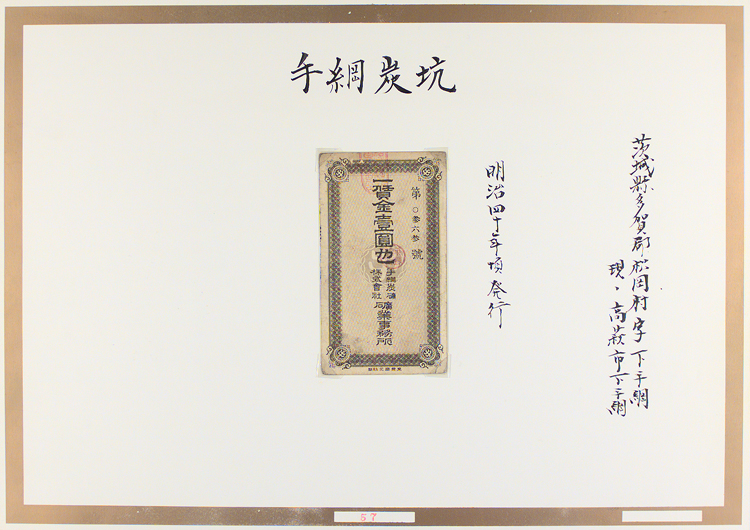 手綱炭坑
茨城縣多賀郡松岡村字下手綱
現、高萩市下手綱
明治四十年頃発行
第〇叁六叁號
一賃金壹圓也
手綱炭礦
株式會社
礦業事務所
57